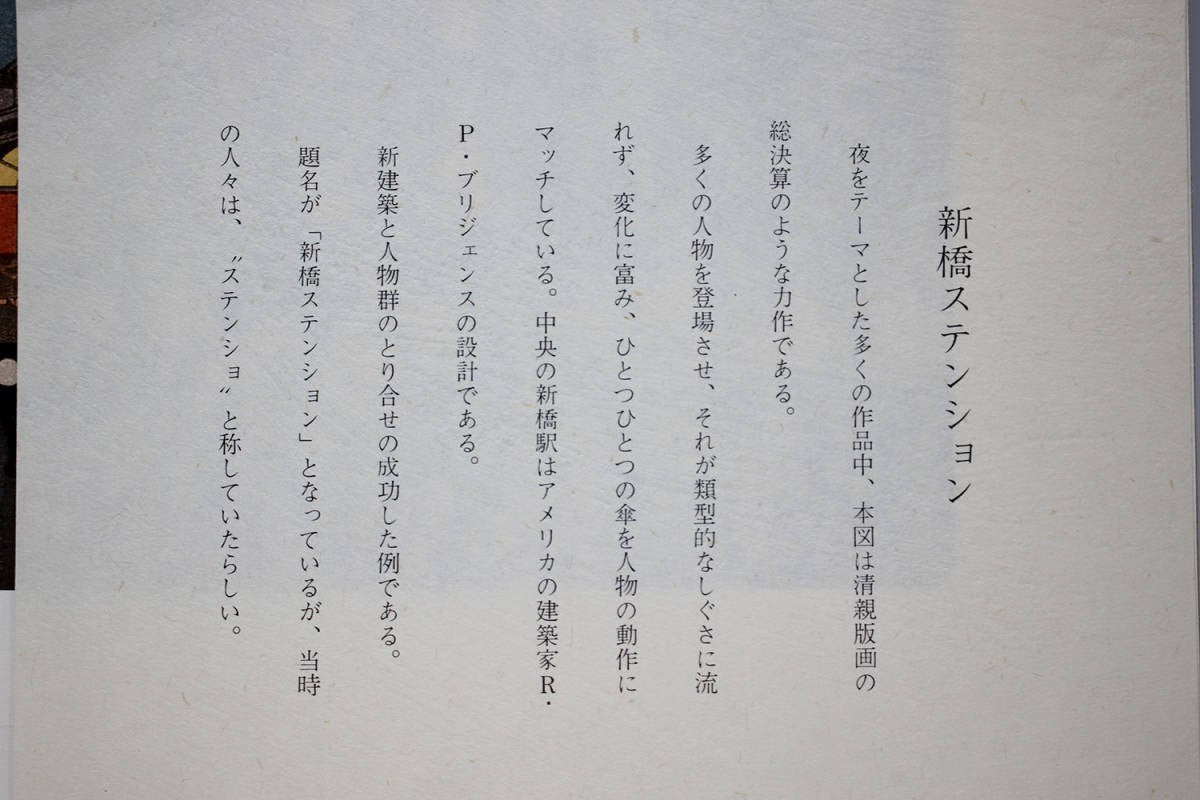 新橋ステンション
夜をテーマとした多くの作品中、本図は清親版画の
総決算のような力作である。
多くの人物を登場させ、それが類型的なしぐさに流
れず、変化に富み、ひとつひとつの傘を人物の動作に
マッチしている。中央の新橋駅はアメリカの建築家R・
P・ブリジェンスの設計である。
新建築と人物群のとり合せの成功した例である。
題名が「新橋ステンション」となっているが、当時
の人々は、〝ステンショ〟と称していたらしい。